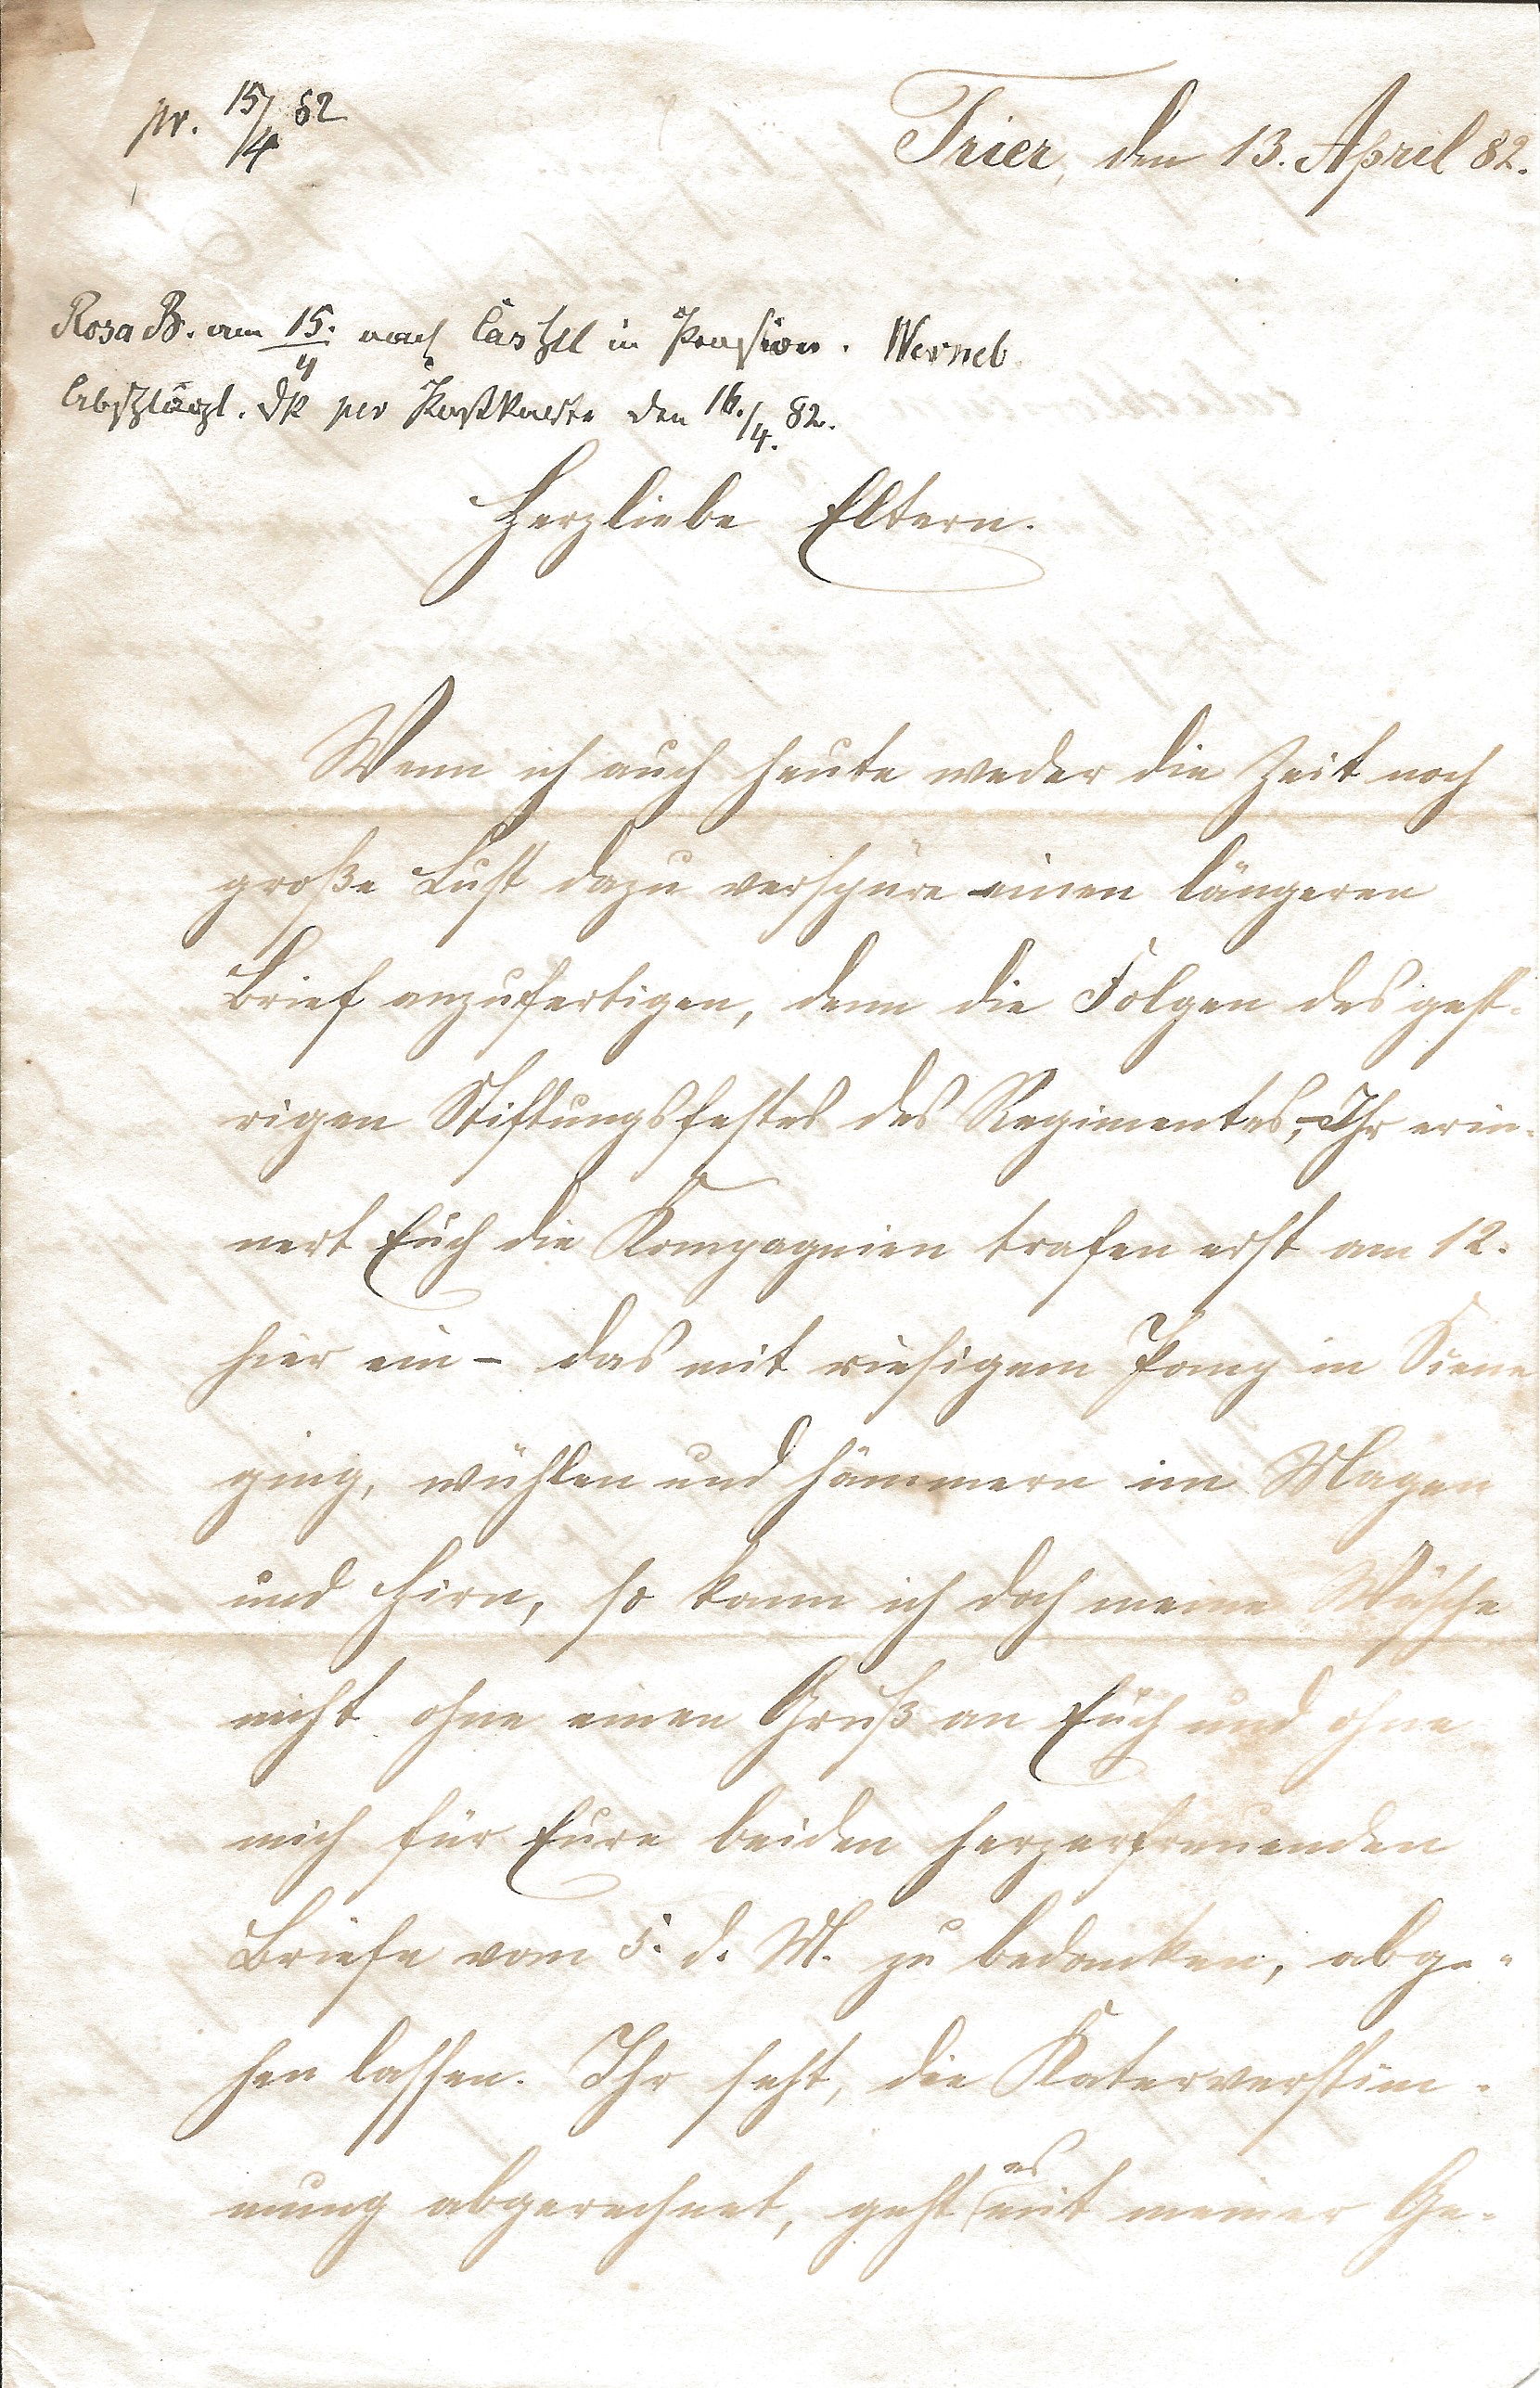 pr. 15/4 82
Trier, den 13. April 82.
Rosa B. am 15./4 nach Castell in Pension. Werneb
den 16./4. 82. per Postkarte
Herzliebe Eltern.
Wenn ich auch heute weder die Zeit noch
große Lust dazu verspüre einen längeren
Brief anzufertigen, denn die Folgen des gest-
rigen Stiftungsfestes des Regimentes, – Ihr erin-
nert Euch die Kompagnien trafen erst am 12.
hier ein – das mit riesigem Pomp in Scene
ging, wühlen und hämmern im Magen
und Hirn, so kann ich doch meine Wäsche
nicht ohne einen Gruß an Euch und ohne
mich für Eure beiden herzerfreuenden
Briefe vom 5. d. M. zu bedanken, abge-
hen lassen. Ihr seht, die Katerverstim-
mung abgerechnet, geht es mit meiner Ge-